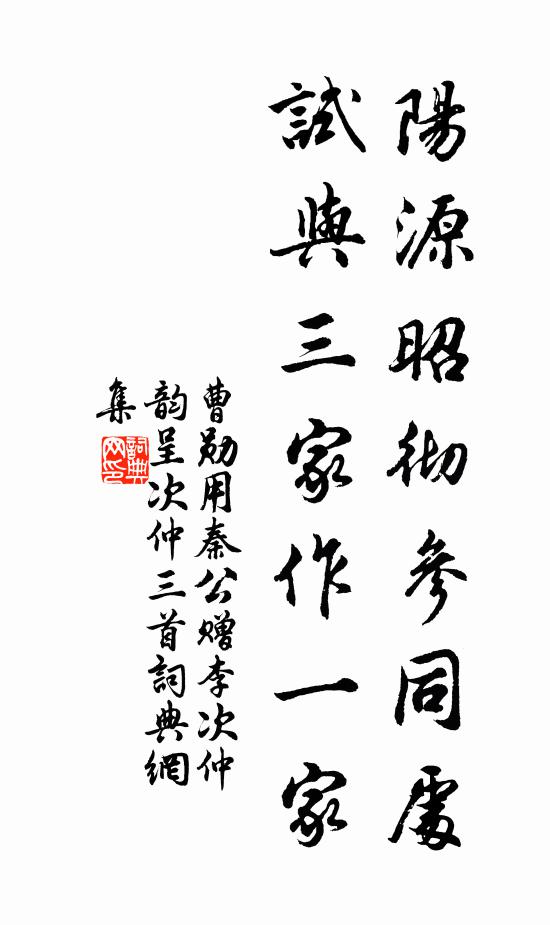 陽源昭彻參同處
試與三家作一家
曹勛用秦公贈李次仲
韵呈次仲三首詞典網
集
詞典網印